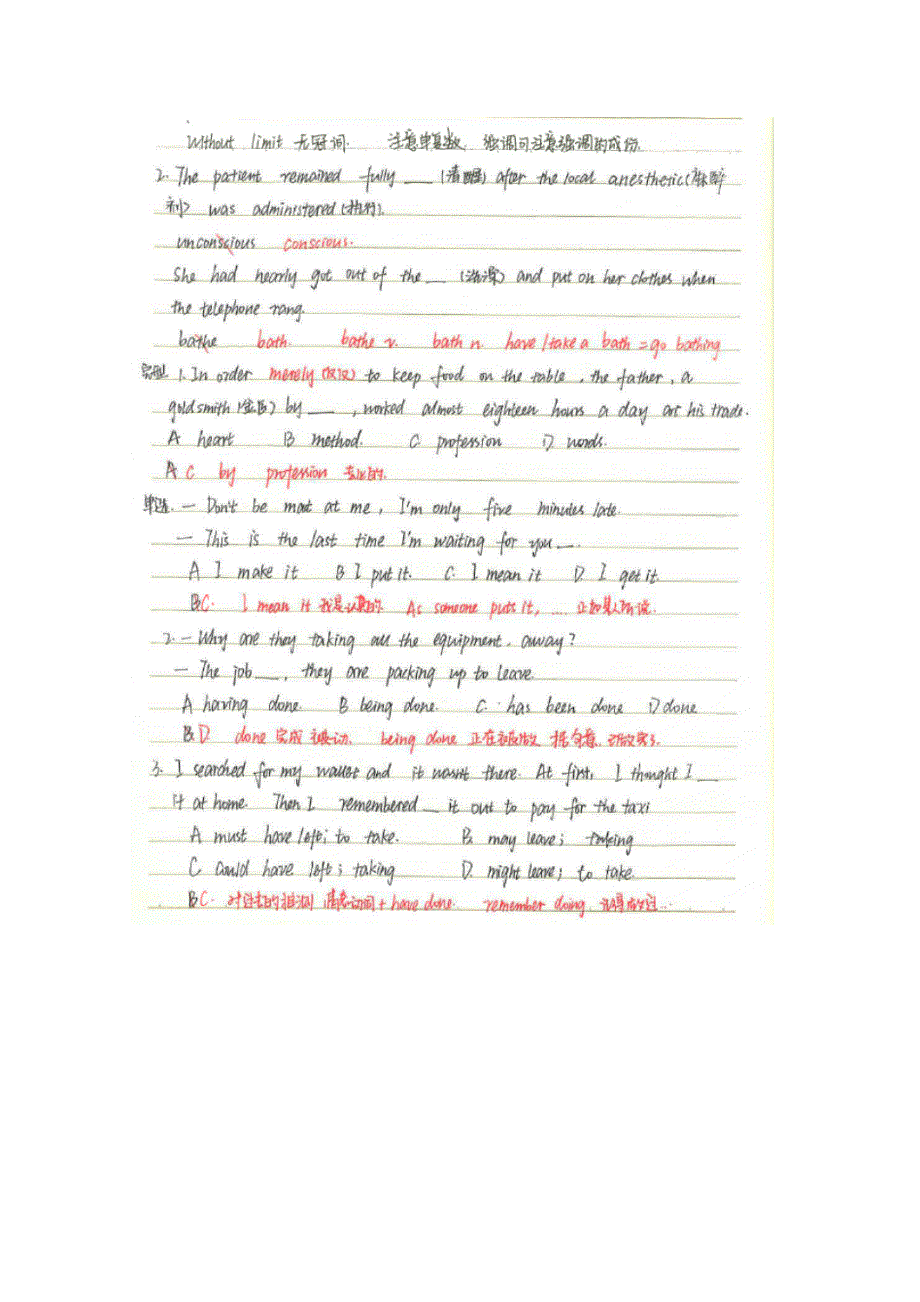 Without limit 无冠词. 注意单复数, 强调句注意强调的成份.
2. The patient remained fully ___ (清醒) after the local anesthesic(麻醉
剂) was administered(执行).
unconscious conscious.
She had nearly got out of the ___ (洗澡) and put on her clothes when
the telephone rang.
bathe bath. bathe v. bath n. have/take a bath = go bathing
完型 1. In order merely (仅仅) to keep food on the table, the father, a
goldsmith (金匠) by ___, worked almost eighteen hours a day at his trade.
A heart B method. C. profession D words.
A C by profession 专业的.
单选. — Don't be mad at me, I'm only five minutes late.
— This is the last time I'm waiting for you ___.
A I make it B I put it. C. I mean it D. I get it.
B C. I mean it 我是认真的. As someone puts it, ... 正如某人所说.
2. — Why are they taking all the equipment away?
— The job ___, they are packing up to leave.
A having done. B being done. C. has been done D done
B D done 完成被动. being done 正在被做
3. I searched for my wallet and it wasn't there. At first, I thought I ___
it at home. Then I remembered ___ it out to pay for the taxi
A must have left; to take. B. may leave; taking
C could have left; taking D. might leave; to take.
B C. 对过去的推测, 情态动词 + have done. remember doing 记得做过...